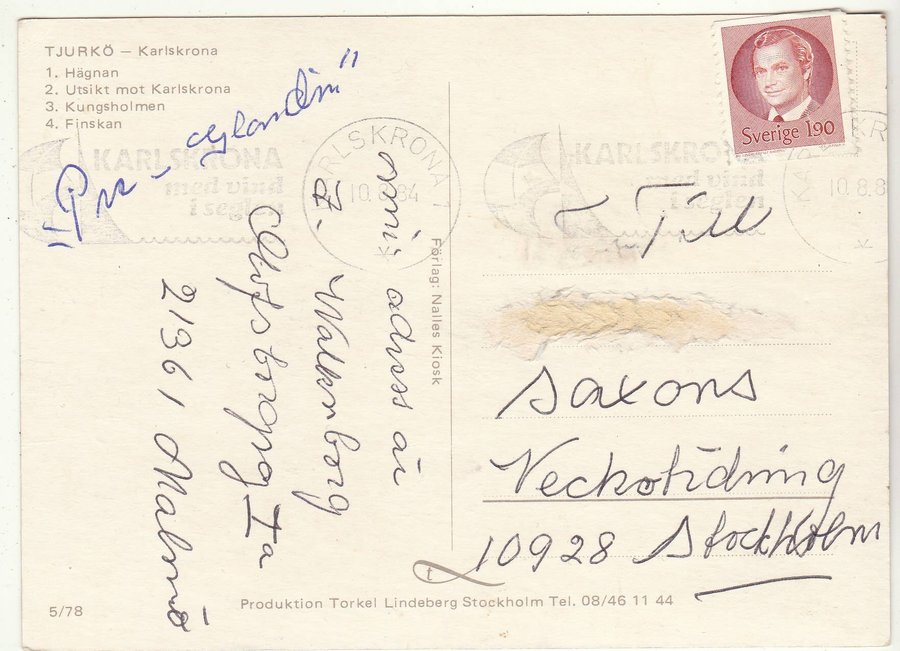 TJURKÖ – Karlskrona
1. Hägnan
2. Utsikt mot Karlskrona
3. Kungsholmen
4. Finskan
Sverige 190
KARLSKRONA
med vind
i seglen
KARLSKRONA 1
10.8.84
KARLSKRONA
med vind
i seglen
10.8.8
min adress är
Z. Walkenborg
Olofsborgsg 1a
21361 Malmö
Förlag: Nalles Kiosk
Till
Saxons
Veckotidning
10928 Stockholm
5/78
Produktion Torkel Lindeberg Stockholm Tel. 08/46 11 44